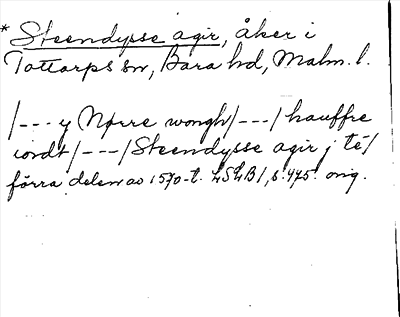 * Steendysse agir, åker i
Tottarps sn, Bara hd, Malm. l.
/--- y Nørre wongh/---/ hauffre
iordt/---/Steendysse agir j té/
förra delen av 1570-t. LSLB1, s. 475. orig.